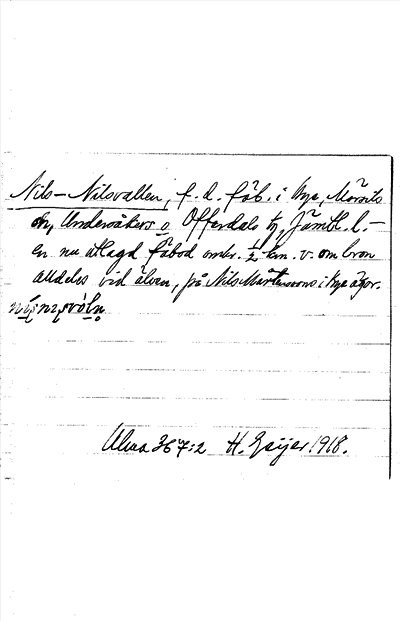 Nils-Nilsvallen, f. d. fäb. i Nye, Mörsils
sn, Undersåkers o Offerdals tg, Jämtl. l. –
en nu utlagd fäbod omkr. ½ km. v. om bron
alldeles vid älven, på Nils Mårtenssons i Nye ägor.

Ulma 367:2 H. Geijer 1918.